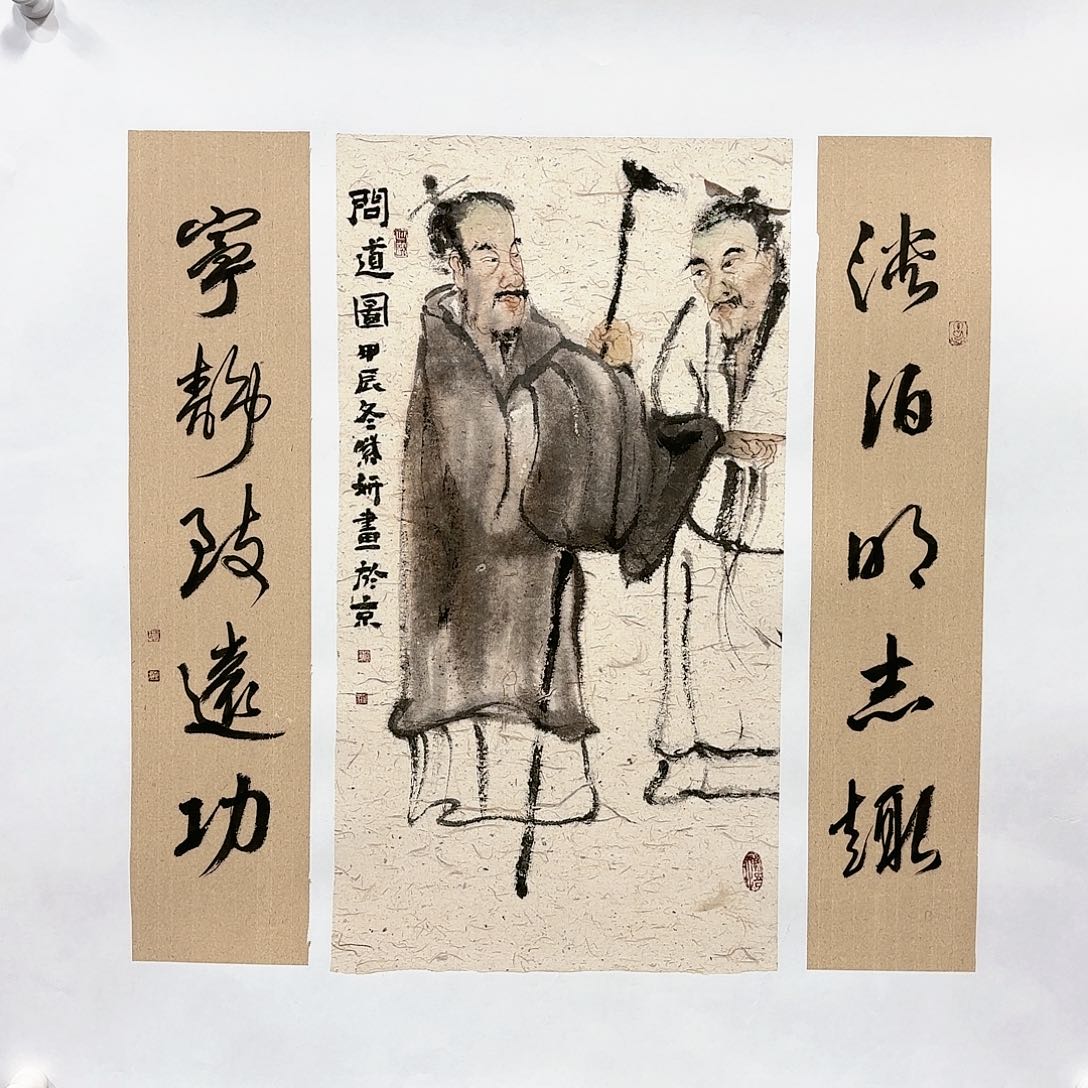 淡泊明志趣
問道圖 甲辰冬 妍畫於京
寧靜致遠功